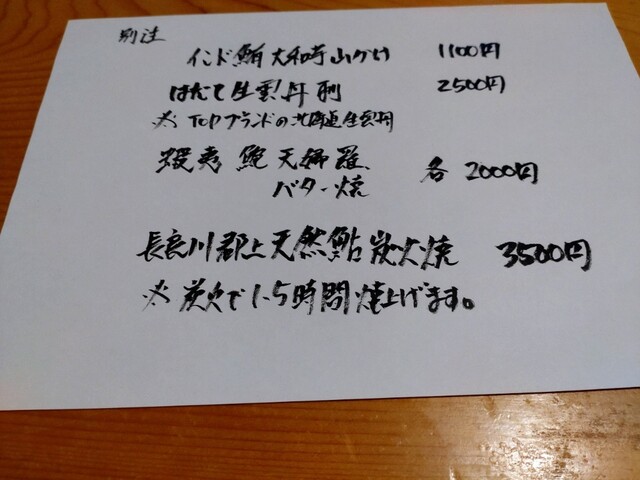 別注
インド鮪大和芋山かけ 1100円
ほたて生雲丹刺 2500円
※TOPブランドの北海道生雲丹
蝦夷鮑天婦羅 各2000円
バター焼
長良川郡上天然鮎炭火焼 3500円
※炭火で1.5時間焼上げます。